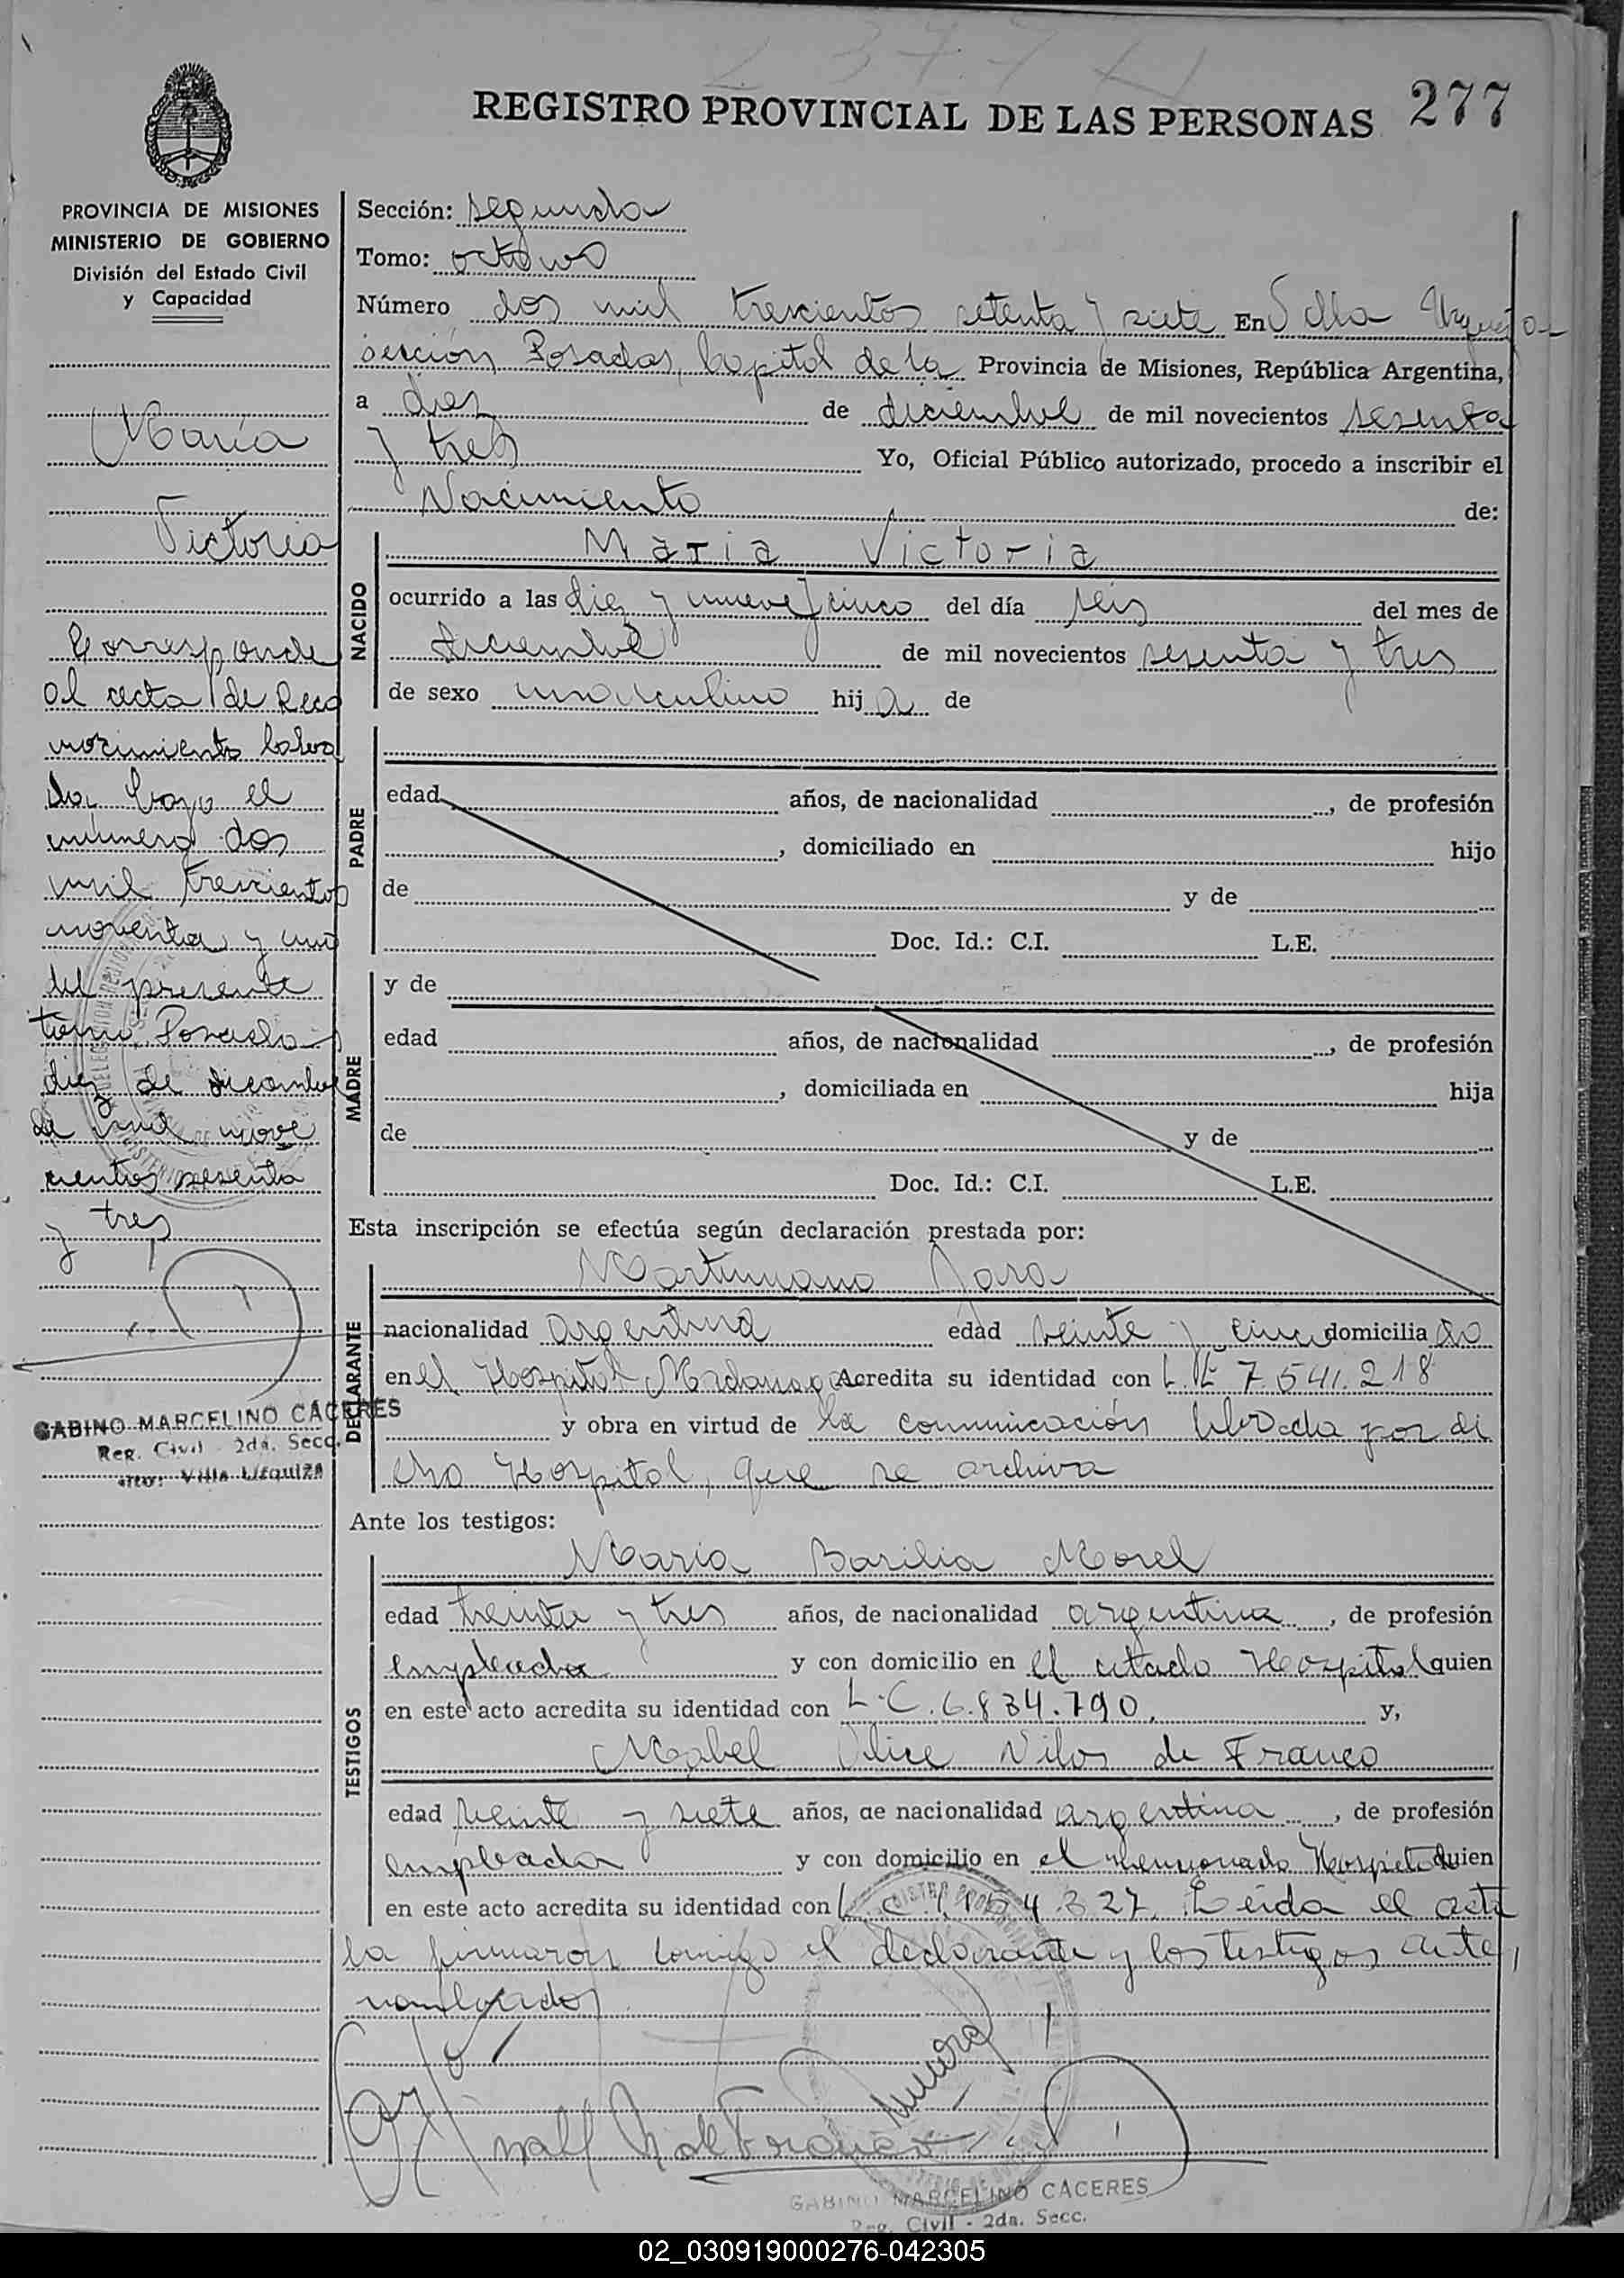 REGISTRO PROVINCIAL DE LAS PERSONAS 277
PROVINCIA DE MISIONES
MINISTERIO DE GOBIERNO
División del Estado Civil
y Capacidad
María
Victoria
Corresponde
al acta de Reco
nocimiento labra
da bajo el
número dos
mil trescientos
noventa y uno
del presente
tomo. Posadas
diez de diciembre
de mil nove
cientos sesenta
y tres
GABINO MARCELINO CACERES
Reg. Civil - 2da. Secc.
Villa Urquiza
Sección: segunda
Tomo: octavo
Número dos mil trescientos setenta y siete En Villa Urquiza
sección Posadas, Capital de la Provincia de Misiones, República Argentina,
a diez de diciembre de mil novecientos sesenta
y tres Yo, Oficial Público autorizado, procedo a inscribir el
Nacimiento de:
NACIDO
Maria Victoria
ocurrido a las diez y nueve y cinco del día seis del mes de
diciembre de mil novecientos sesenta y tres
de sexo masculino hija de
PADRE
edad años, de nacionalidad , de profesión
, domiciliado en hijo
de y de
Doc. Id.: C.I. L.E.
MADRE
y de
edad años, de nacionalidad , de profesión
, domiciliada en hija
de y de
Doc. Id.: C.I. L.E.
Esta inscripción se efectúa según declaración prestada por:
DECLARANTE
Martiniano Jara
nacionalidad argentina edad veinte y cinco domiciliado
en el Hospital Madariaga Acredita su identidad con L.E 7.541.218
y obra en virtud de la comunicación librada por di
cho Hospital, que se archiva
Ante los testigos:
TESTIGOS
María Basilia Morel
edad treinta y tres años, de nacionalidad argentina, de profesión
empleada y con domicilio en el citado Hospital quien
en este acto acredita su identidad con L.C.6.834.790. y,
Mabel Alice Vilos de Franco
edad veinte y siete años, de nacionalidad argentina, de profesión
empleada y con domicilio en el mencionado Hospital quien
en este acto acredita su identidad con L.C. Leída el acta
la firmaron conmigo el declarante y los testigos ante,
nombrados
GABINO MARCELINO CACERES
Reg. Civil - 2da. Secc.
02_030919000276-042305